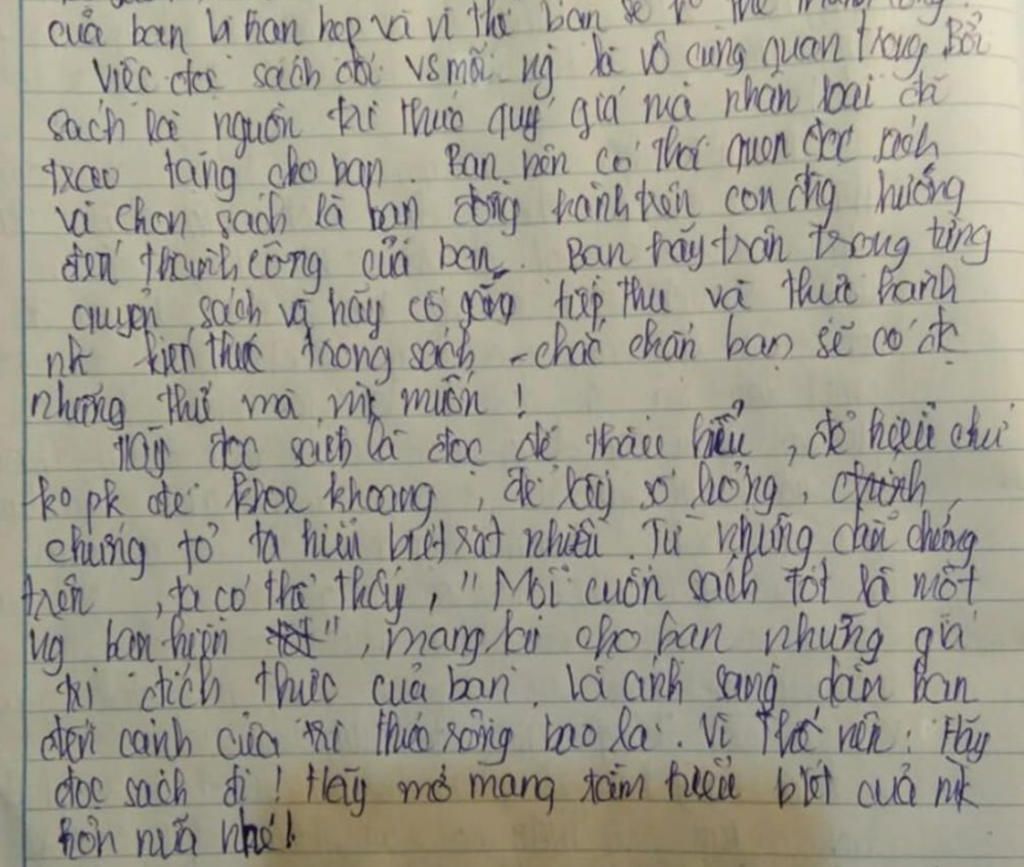 của bạn bị hạn hẹp và vì thế bạn sẽ
Việc đọc sách đối vs mỗi ng là vô cùng quan trọng. Bởi
sách là nguồn tri thức quý giá mà nhân loại đã
trao tặng cho bạn. Bạn nên có thói quen đọc sách
và chọn sách là bạn đồng hành trên con đg hướng
đến thành công của bạn. Bạn hãy trân trọng từng
quyển sách và hãy cố gắng tiếp thu và thực hành
nh kiến thức trong sách - chắc chắn bạn sẽ có đc
những thứ mà mk muốn!
Hãy đọc sách là đọc để thấu hiểu, để hiểu chứ
ko pk để khoe khoang, để lấy số lượng,
chứng tỏ ta hiểu biết rất nhiều. Từ những dẫn chứng
trên, ta có thể thấy, "Mỗi cuốn sách tốt là một
ng bạn hiền", mang lại cho bạn những giá
trị đích thực của bạn. Là ánh sáng dẫn bạn
đến cánh cửa tri thức rộng bao la. Vì thế nên: Hãy
đọc sách đi! Hãy mở mang tầm hiểu biết của mk
hơn nữa nhé!